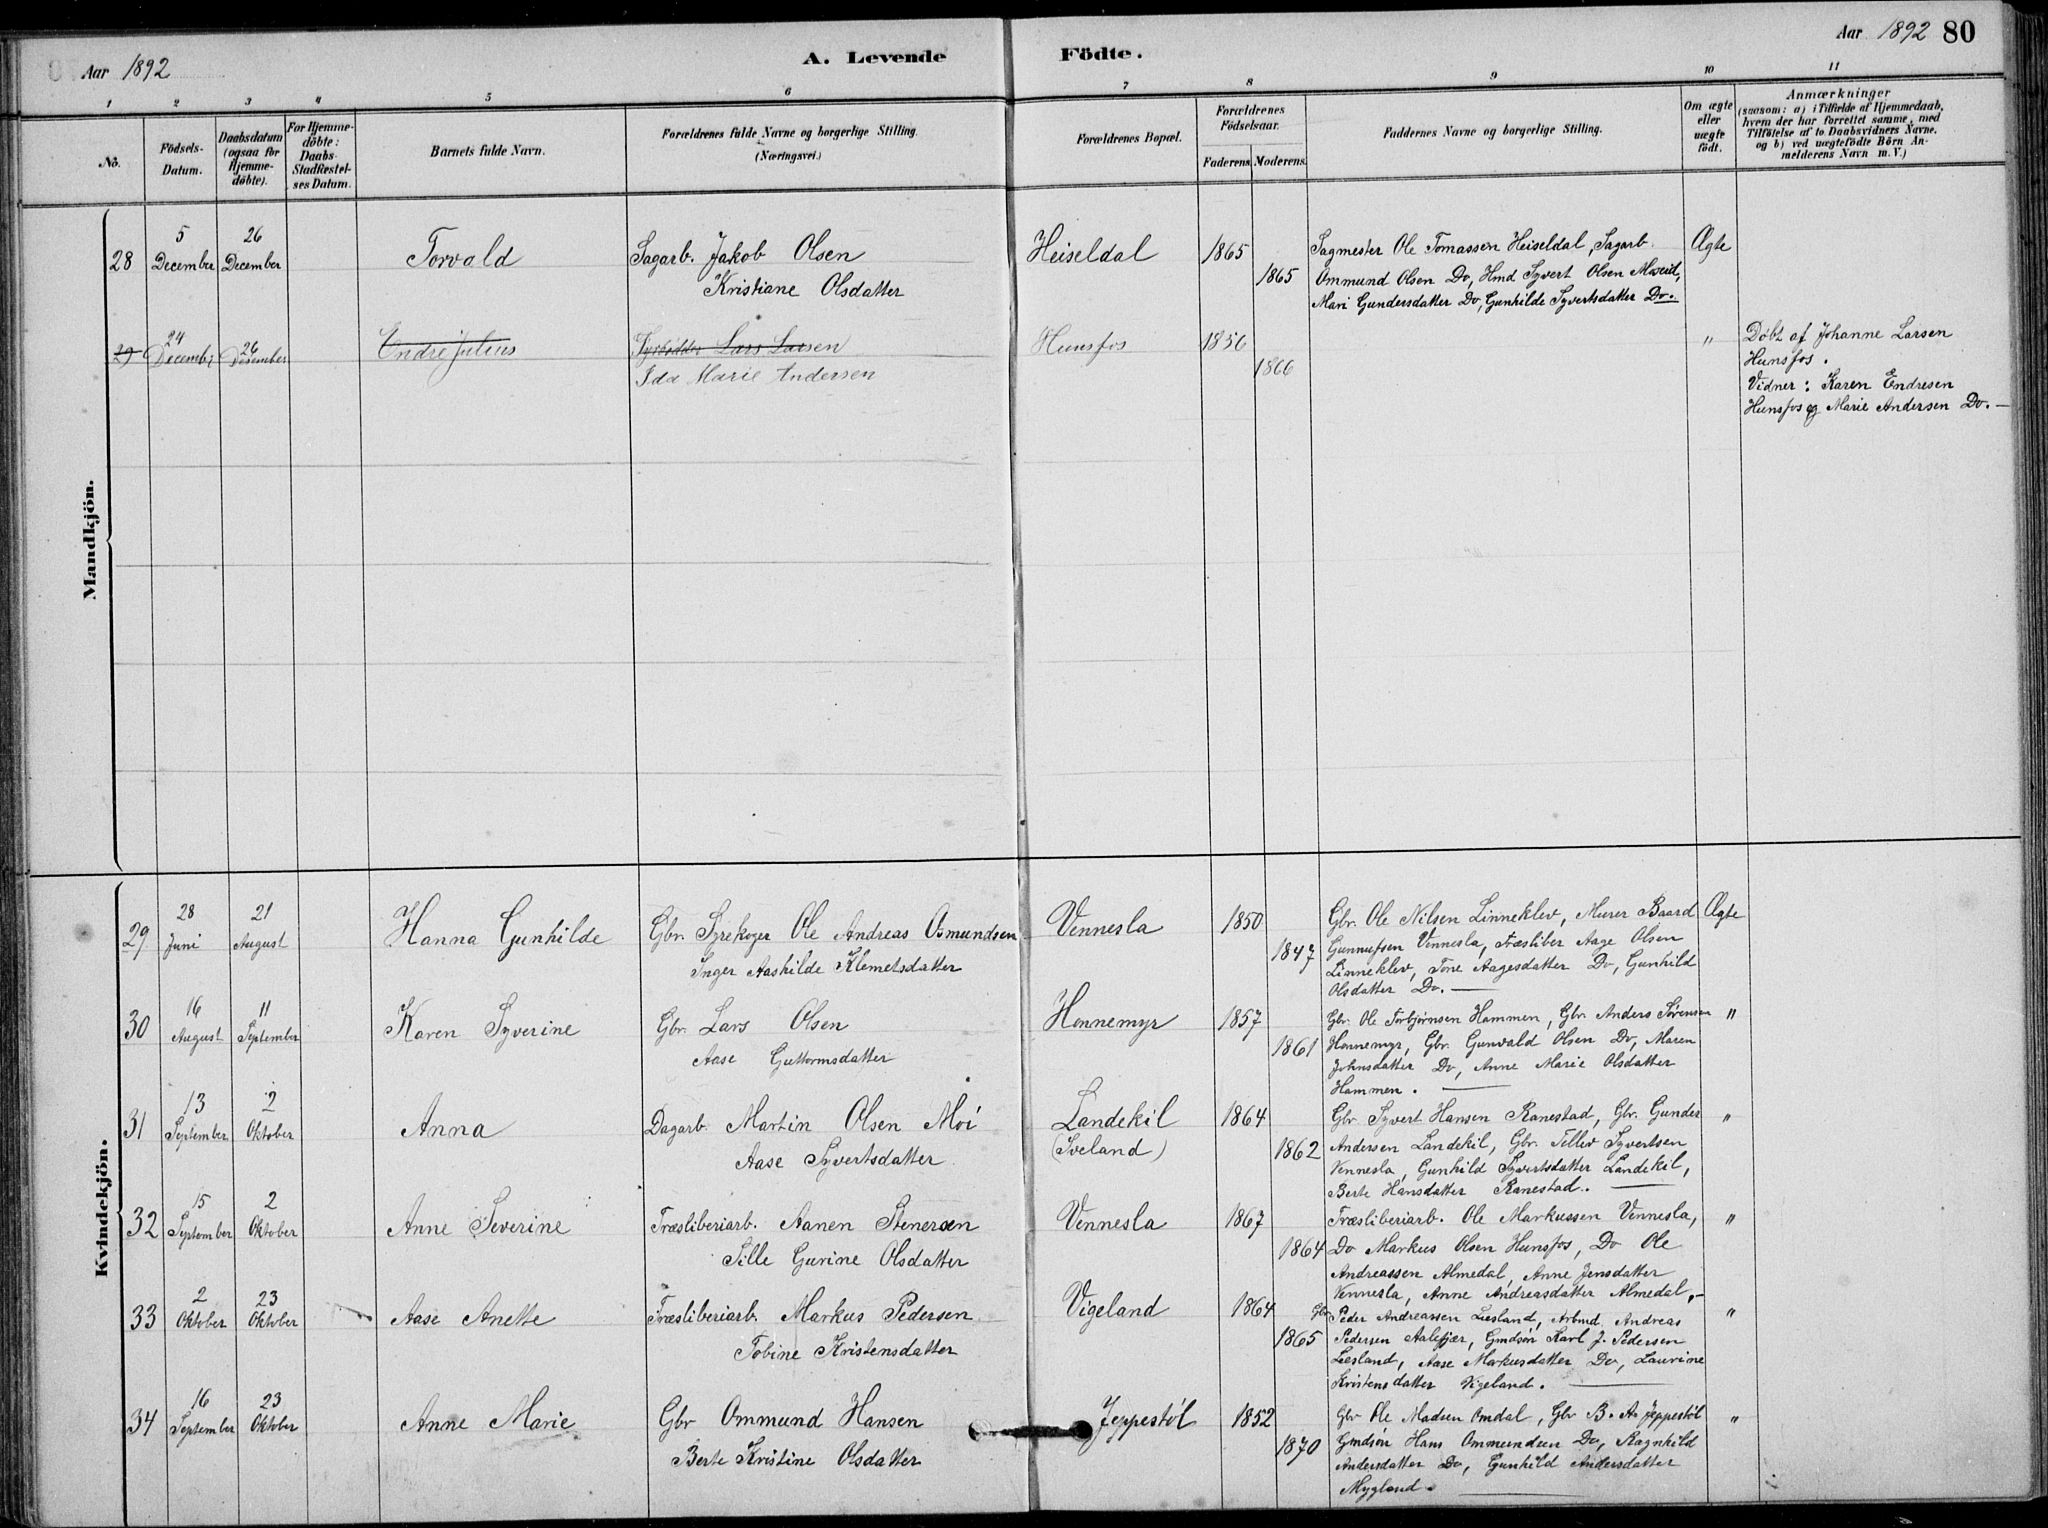 Aar 1892
A. Levende Födte.
Aar 1892 80
1 2 3 4 5 6 7 8 9 10 11
No.
Födsels-Datum.
Daabsdatum (ogsaa for Hjemme-döbte).
For Hjemme-döbte: Daabs-Stadfæstel-ses Datum.
Barnets fulde Navn.
Forældrenes fulde Navne og borgerlige Stilling.
(Næringsvei.)
Forældrenes Bopæl.
Forældrenes Födselsaar.
Faderens. Moderens.
Faddernes Navne og borgerlige Stilling.
Om ægte eller uægte födt.
Anmærkninger
(saasom: a) i Tilfælde af Hjemmedaab,
hvem der har forrettet samme, med
Tilföielse af to Daabsvidners Navne.
og b) ved uægtefödte Börn An-
melderens Navn m. V.)
Mandkjön.
28 5 December 26 December Torvald Sagarb. Jakob Olsen
Kristiane Olsdatter
Heiseldal 1865 1865
Sagmester Ole Tomassen Heiseldal, Sagarb.
Ommund Olsen Do, Hmd Syvert Olsen Moseid,
Mari Gundersdatter Do, Gunhilde Syvertsdatter Do.
Ægte
29 24 December 26 Desember Endre Julius Fyrbödder Lars Larsen
Ida Marie Andersen
Hunsfos 1856 1866 "
Döbt af Johanne Larsen
Hunsfos.
Vidner: Karen Endresen
Hunsfos og Marie Andersen Do. —
Kvindekjön.
29 28 Juni 21 August Hanna Gunhilde Gbr. Syrekoger Ole Andreas Osmundsen
Inger Aashilde Klemetsdatter
Vennesla 1850 1847
Gbr. Ole Nilsen Linneklev, Murer Baard
Gunnufsen Vennesla, Træsliber Aage Olsen
Linneklev, Tone Aagesdatter Do, Gunhild
Olsdatter Do. —
Ægte
30 16 August 11 September Karen Syverine Gbr. Lars Olsen
Aase Guttormsdatter
Honnemyr 1857 1861
Gbr. Ole Torbjørnsen Hammen, Gbr. Anders Sørensen
Honnemyr, Gbr. Gunvald Olsen Do, Maren
Johnsdatter Do, Anne Marie Olsdatter
Hammen. —
"
31 13 September 2 Oktober Anna Dagarb. Martin Olsen Moi
Aase Syvertsdatter
Landekil
(Iveland)
1864 1862
Gbr. Syvert Hansen Ranestad, Gbr. Gunder
Andersen Landekil, Gbr. Tellev Syvertsen
Vennesla, Gunhild Syvertsdatter Landekil,
Berte Hansdatter Ranestad. —
"
32 15 September 2 Oktober Anne Severine Træsliberiarb. Aanen Stenersen
Sille Gurine Olsdatter
Vennesla 1867 1864
Træsliberiarb. Ole Markussen Vennesla,
Do Markus Olsen Hunsfos, Do Ole
Andreassen Almedal, Anne Jensdatter
Vennesla, Anne Andreasdatter Almedal, -
"
33 2 Oktober 23 Oktober Aase Anette Træsliberiarb. Markus Pedersen
Tobine Kristensdatter
Vigeland 1864 1865
Gbr Peder Andreassen Liesland, Arbmd. Andreas
Pedersen Aalefjær, Gmdsøn Karl J. Pedersen
Liesland, Aase Markusdatter Do, Laurine
Kristensdatter Vigeland. —
"
34 16 September 23 Oktober Anne Marie Gbr Ommund Hansen
Berte Kristine Olsdatter
Jeppestøl 1852 1870
Gbr Ole Madsen Omdal, Gbr B. A. Jeppestøl
Gmdsøn Hans Ommundsen Do, Ragnhild
Andersdatter Do, Gunhild Andersdatter
Mygland. —
"